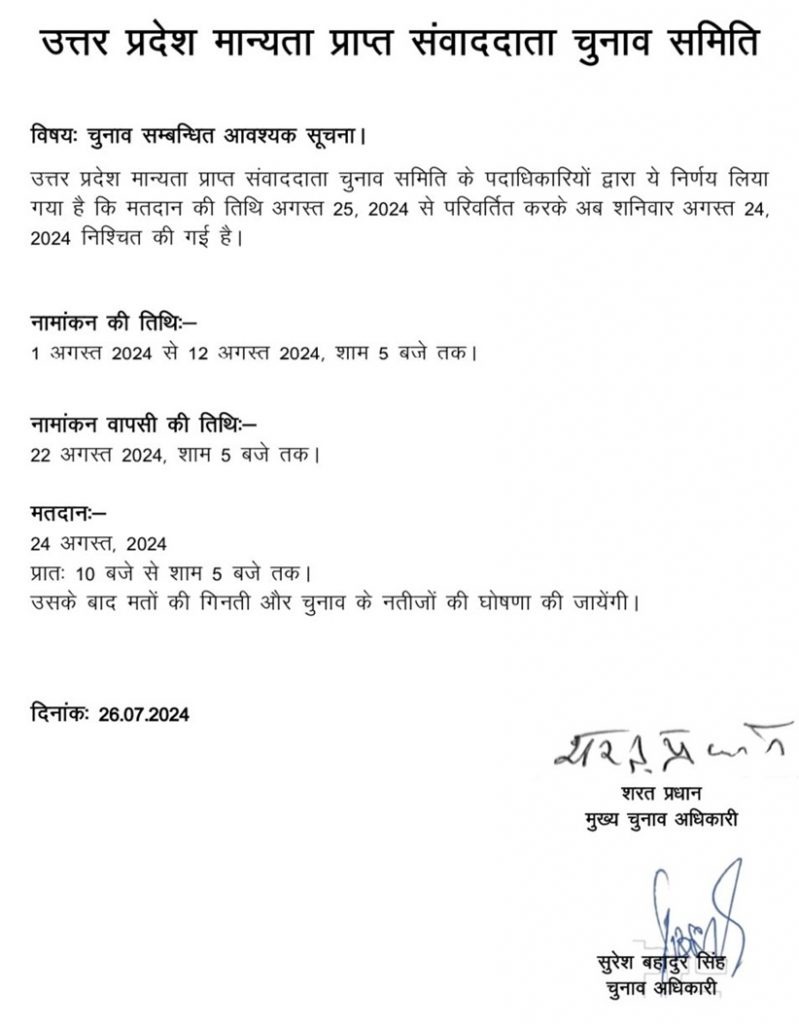 उत्तर प्रदेश मान्यता प्राप्त संवाददाता चुनाव समिति
विषयः चुनाव सम्बन्धित आवश्यक सूचना।
उत्तर प्रदेश मान्यता प्राप्त संवाददाता चुनाव समिति के पदाधिकारियों द्वारा ये निर्णय लिया
गया है कि मतदान की तिथि अगस्त 25, 2024 से परिवर्तित करके अब शनिवार अगस्त 24,
2024 निश्चित की गई है।
नामांकन की तिथिः–
1 अगस्त 2024 से 12 अगस्त 2024, शाम 5 बजे तक।
नामांकन वापसी की तिथिः–
22 अगस्त 2024, शाम 5 बजे तक।
मतदानः–
24 अगस्त, 2024
प्रातः 10 बजे से शाम 5 बजे तक।
उसके बाद मतों की गिनती और चुनाव के नतीजों की घोषणा की जायेंगी।
दिनांकः 26.07.2024
शरत प्रधान
मुख्य चुनाव अधिकारी
सुरेश बहादुर सिंह
चुनाव अधिकारी